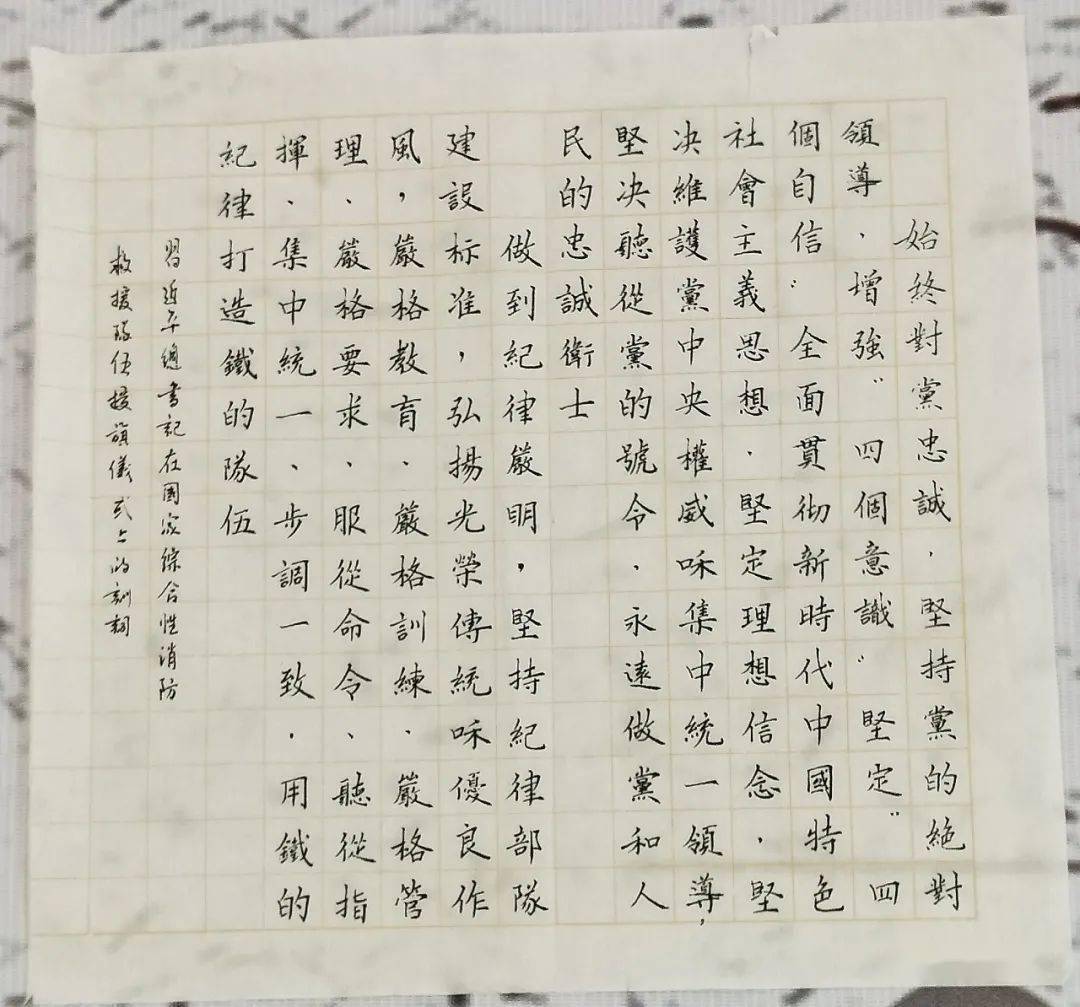 始終對黨忠誠，堅持黨的絕對
領導，增強“四個意識”堅定“四
個自信”全面貫彻新時代中國特色
社會主義思想，堅定理想信念，堅
决維護黨中央權威咊集中統一領導，
堅决聽從黨的號令，永遠做黨和人
民的忠誠衛士
做到紀律嚴明，堅持紀律部隊
建設标准，弘揚光榮傳統咊優良作
風，嚴格教育、嚴格訓練、嚴格管
理、嚴格要求、服從命令、聽從指
揮、集中統一、步調一致，用鐵的
紀律打造鐵的隊伍
習近平總書記在國家綜合性消防
救援隊伍授旗儀式上的訓詞